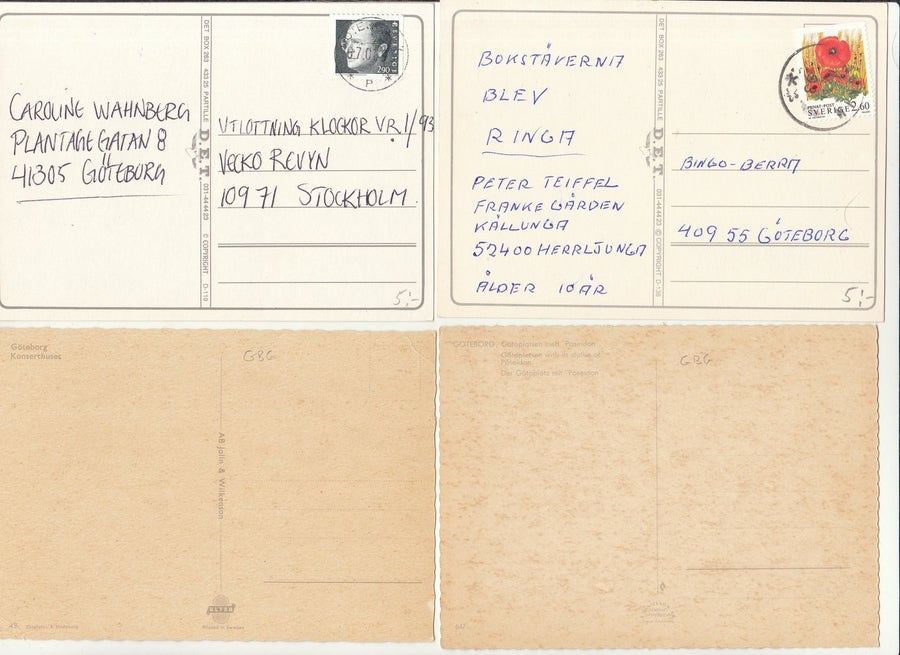 CAROLINE WAHNBERG
PLANTAGEGATAN 8
41305 GÖTEBURG
DET BOX 263 433 25 PARTILLE
D.E.T.
031-44 44 23
© COPYRIGHT D-119
SVERIGE
290
UTLOTTNING KLOCKOR VR.1/93
VECKO REVYN
10971 STOCKHOLM
5:-
BOKSTÄVERNA
BLEV
RINGA
PETER TEIFFEL
FRANKE GÅRDEN
KÄLLUNGA
52400 HERRLJUNGA
ÅLDER 10 ÅR
DET BOX 263 433 25 PARTILLE
D.E.T.
031-44 44 23
© COPYRIGHT D-138
SVERIGE 2,60
BINGO-BERRA
409 55 GÖTEBORG
5:-
Göteborg
Konserthuset
GBG
AB Jolin & Wilkenson
ULTRA
Printed in Sweden
GÖTEBORG. Götaplatsen med Poseidon
Götaplatsen with its statue of
Poseidon
Der Götaplatz mit Poseidon
GBG